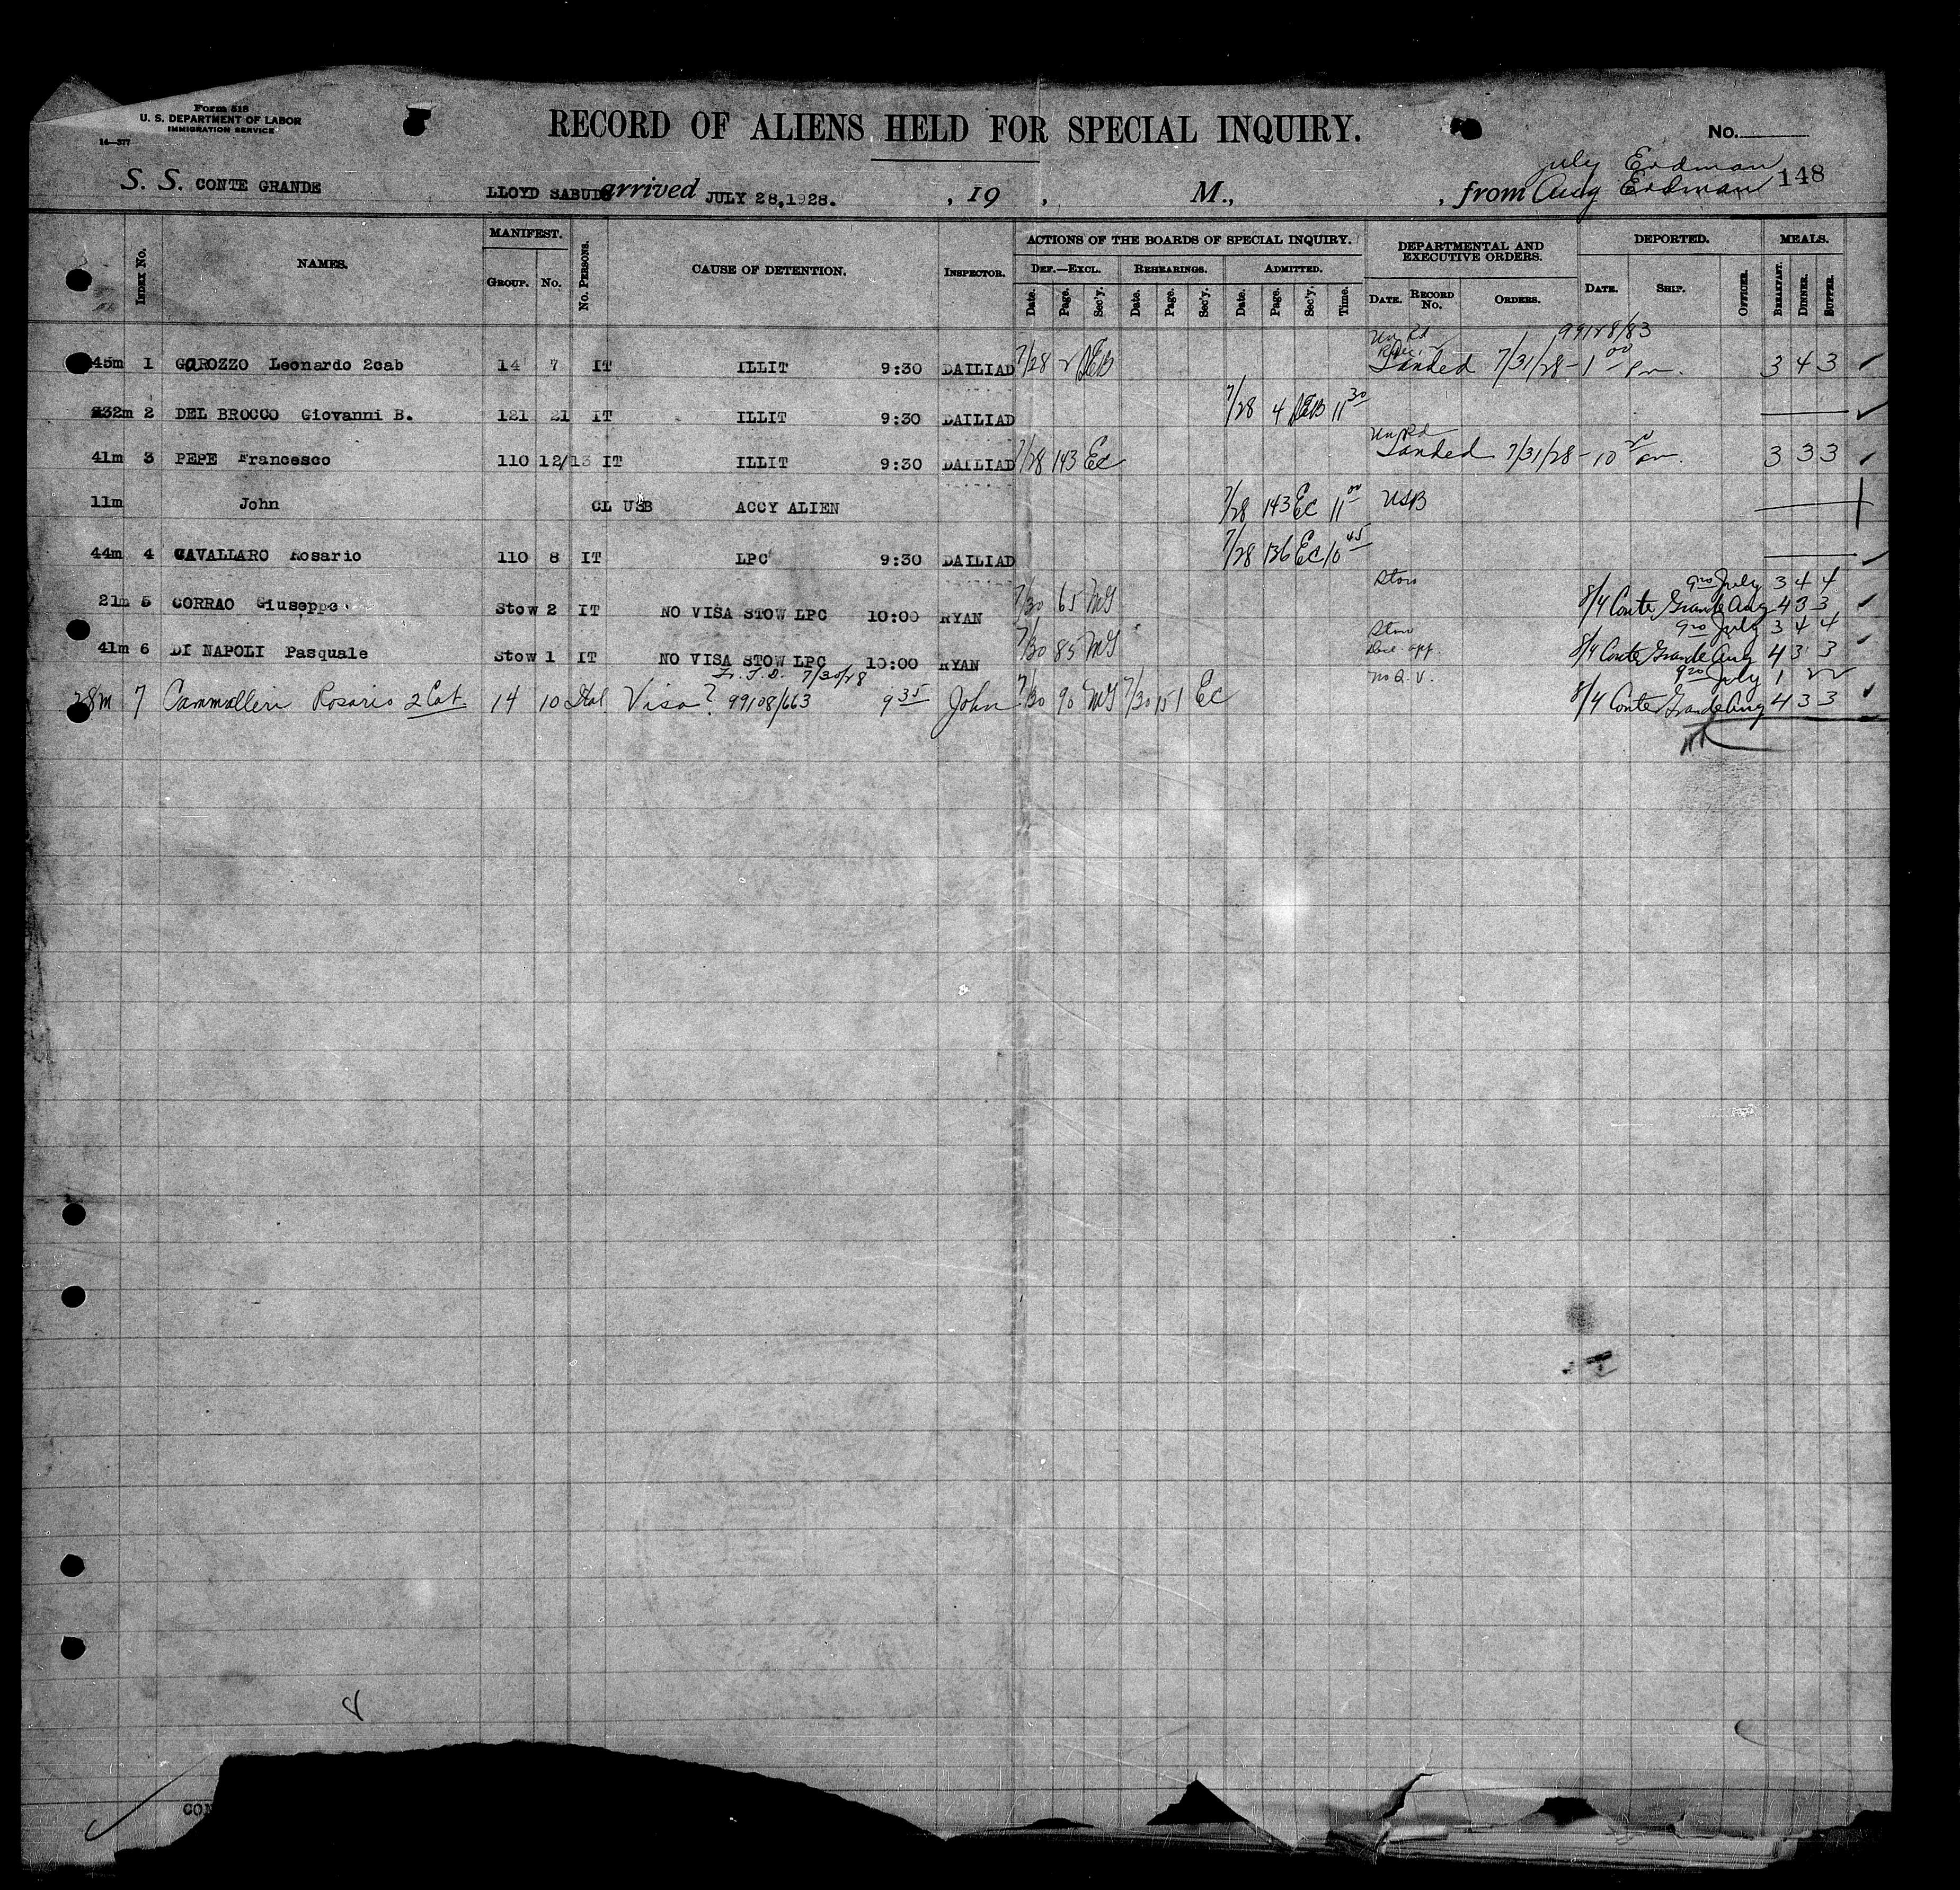 Form 518
U. S. DEPARTMENT OF LABOR
IMMIGRATION SERVICE
14—377
RECORD OF ALIENS HELD FOR SPECIAL INQUIRY.
No.
July Erdman
S. S. CONTE GRANDE LLOYD SABUDO arrived JULY 28, 1928. , 19 , M., , from Aug Erdman 148
INDEX No. NAMES. MANIFEST. GROUP. No. No. PERSONS. CAUSE OF DETENTION. INSPECTOR. ACTIONS OF THE BOARDS OF SPECIAL INQUIRY. DEPARTMENTAL AND EXECUTIVE ORDERS. DEPORTED. MEALS.
DEF.—EXCL. REHEARINGS. ADMITTED.
Date. Page. Sec'y. Date. Page. Sec'y. Date. Page. Sec'y. Time. DATE. RECORD No. ORDERS. DATE. SHIP. OFFICER. BREAKFAST. DINNER. SUPPER.
99188/83
45m 1 GOROZZO Leonardo 2cab 14 7 IT ILLIT 9:30 DAILIAD 7/28 2 Landed 7/31/28 - 1 00 pm. 3 4 3
32m 2 DEL BROCCO Giovanni B. 121 21 IT ILLIT 9:30 DAILIAD 7/28 4 11 30
41m 3 PEPE Francesco 110 12/13 IT ILLIT 9:30 DAILIAD 7/28 143 EC Landed 7/31/28 - 10 20 am. 3 3 3
11m John CL USB ACCY ALIEN 7/28 143 EC 11 00 USB
44m 4 CAVALLARO Rosario 110 8 IT LPC 9:30 DAILIAD 7/28 136 EC 10 45
Stow July 3 4 4
21m 5 CORRAO Giuseppe Stow 2 IT NO VISA STOW LPC 10:00 RYAN 7/30 65 MG 8/4 Conte Grande Aug 4 3 3
Stow July 3 4 4
41m 6 DI NAPOLI Pasquale Stow 1 IT NO VISA STOW LPC 10:00 RYAN 7/30 85 MG 8/4 Conte Grande Aug 4 3 3
7/30/28 No Q. V. July 1 2 2
28m 7 Cammalleri Rosario 2 Cab 14 10 Ital Visa? 99108/663 9 35 John 7/30 90 MG 7/30 151 EC 8/4 Conte Grande Aug 4 3 3
8
CON